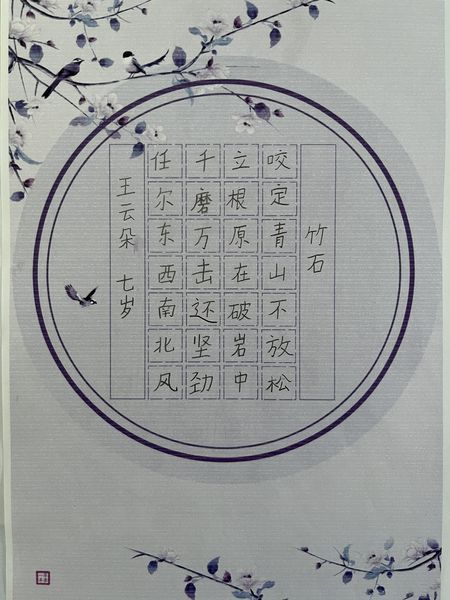 竹石
咬定青山不放松
立根原在破岩中
千磨万击还坚劲
任尔东西南北风
王云朵 七岁